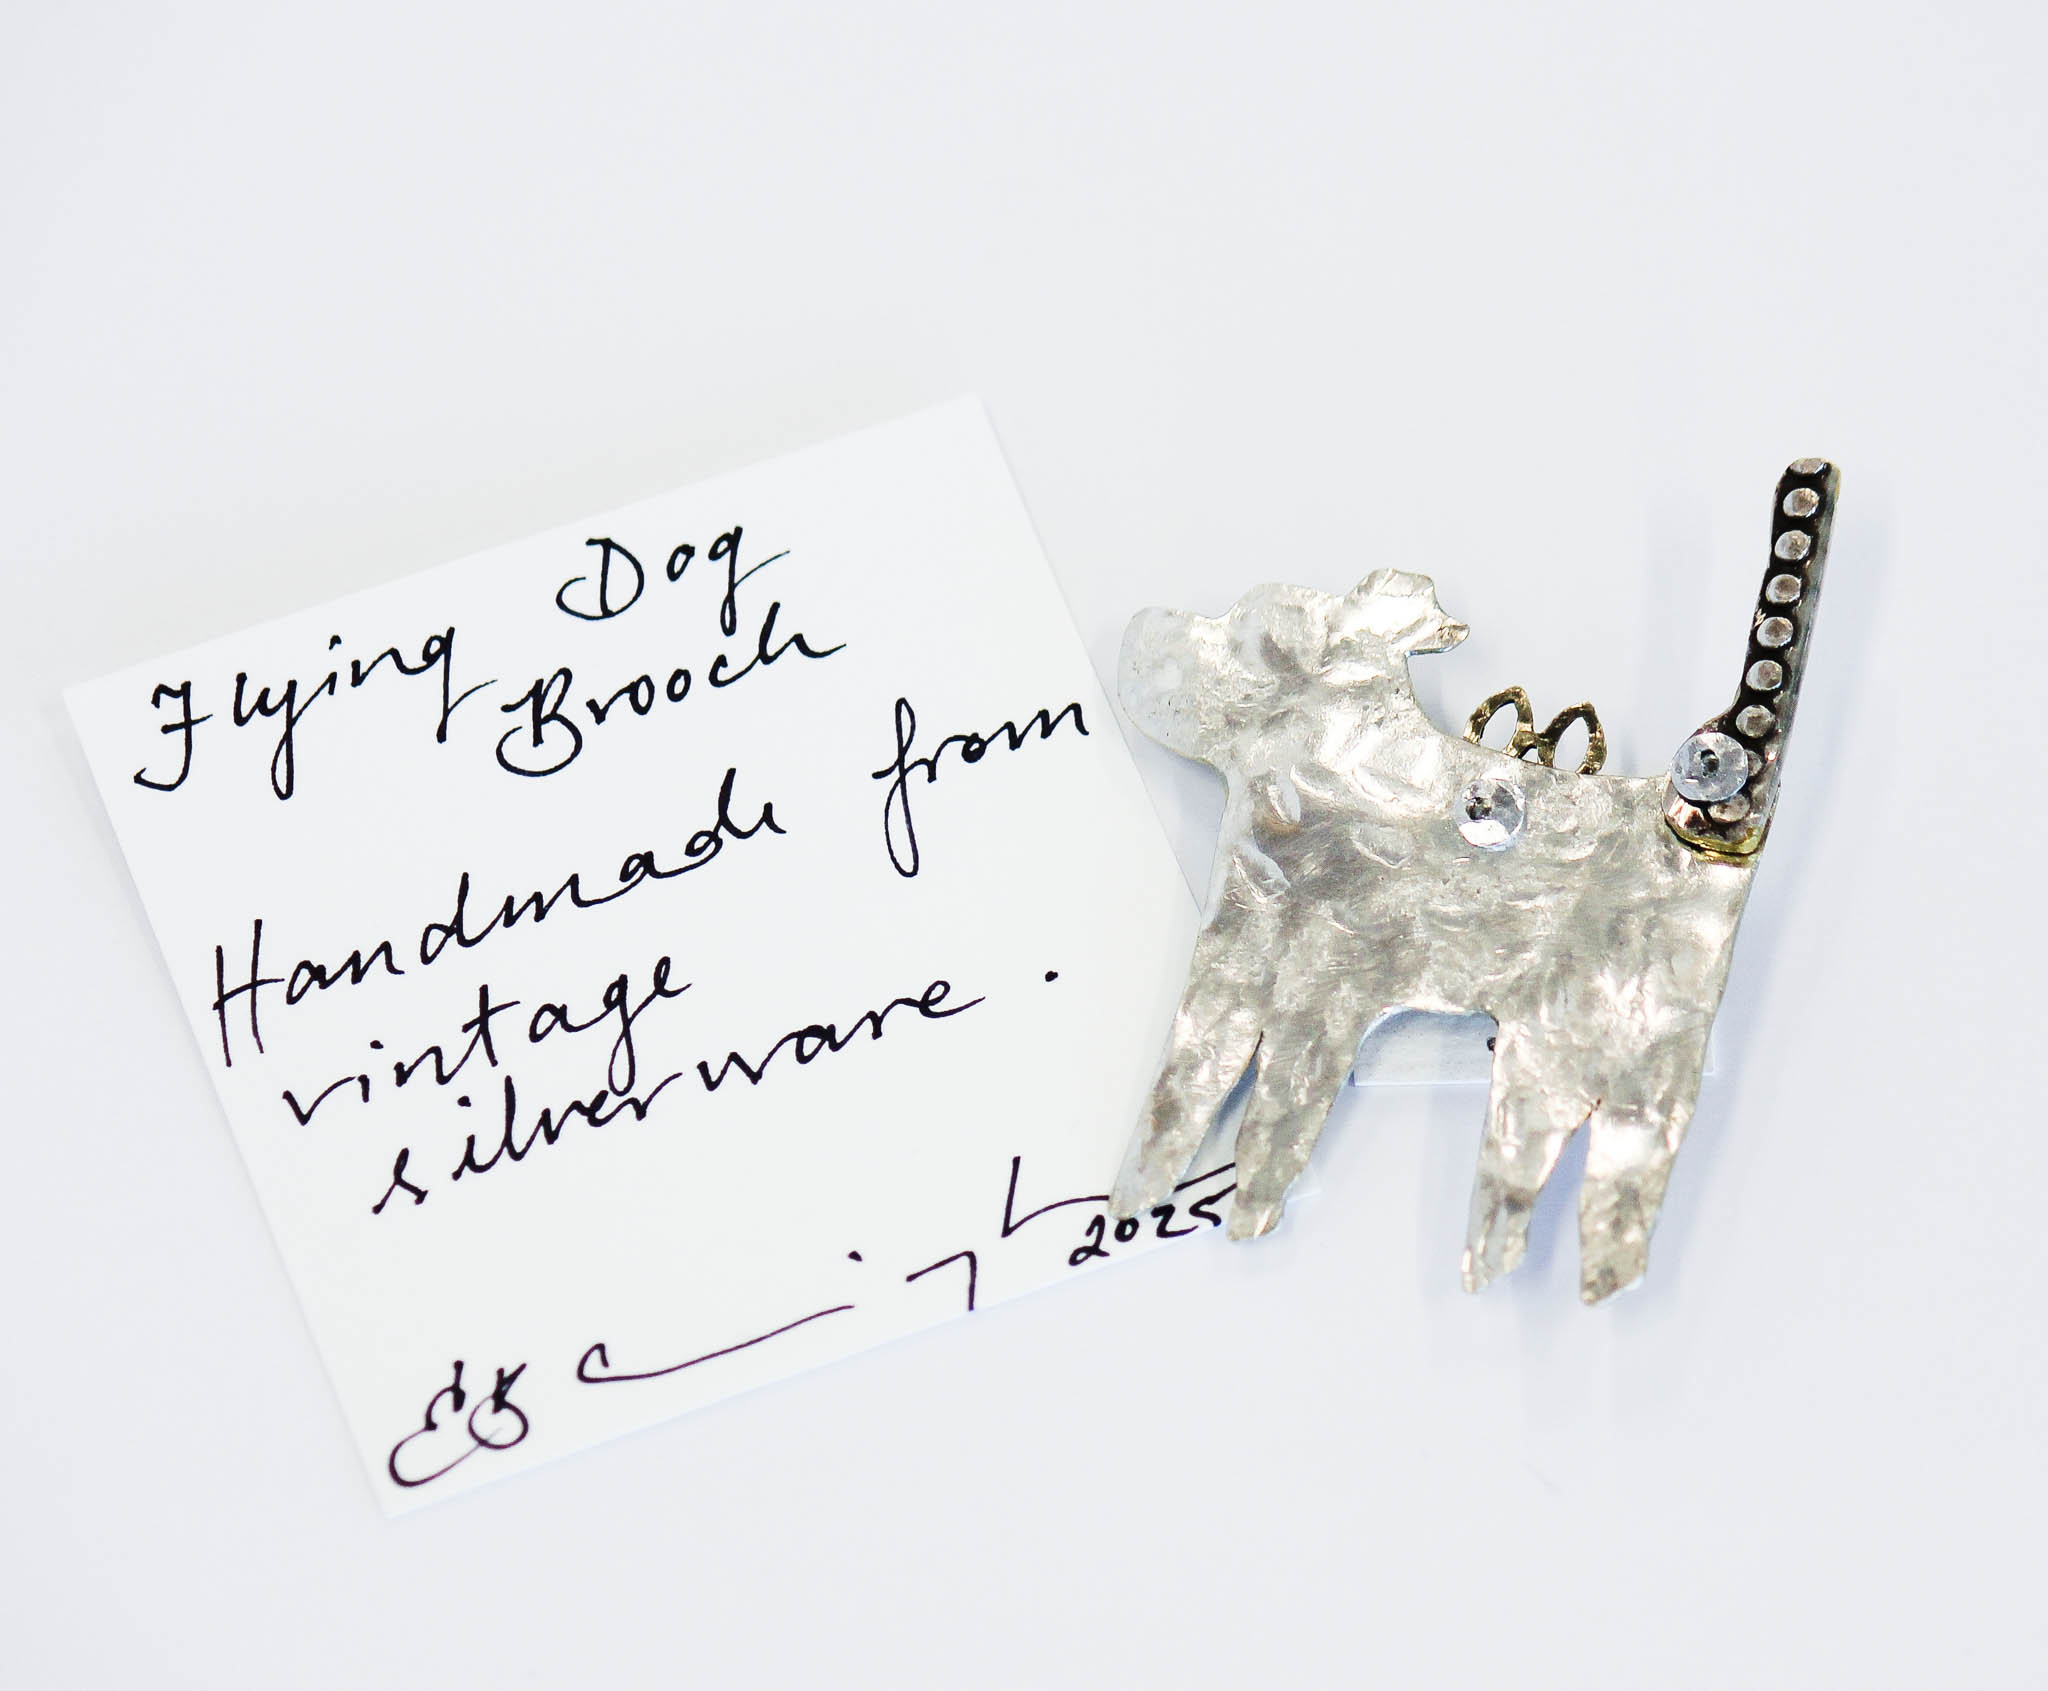 Flying Dog
Brooch
Handmade from
vintage
silverware.
2025